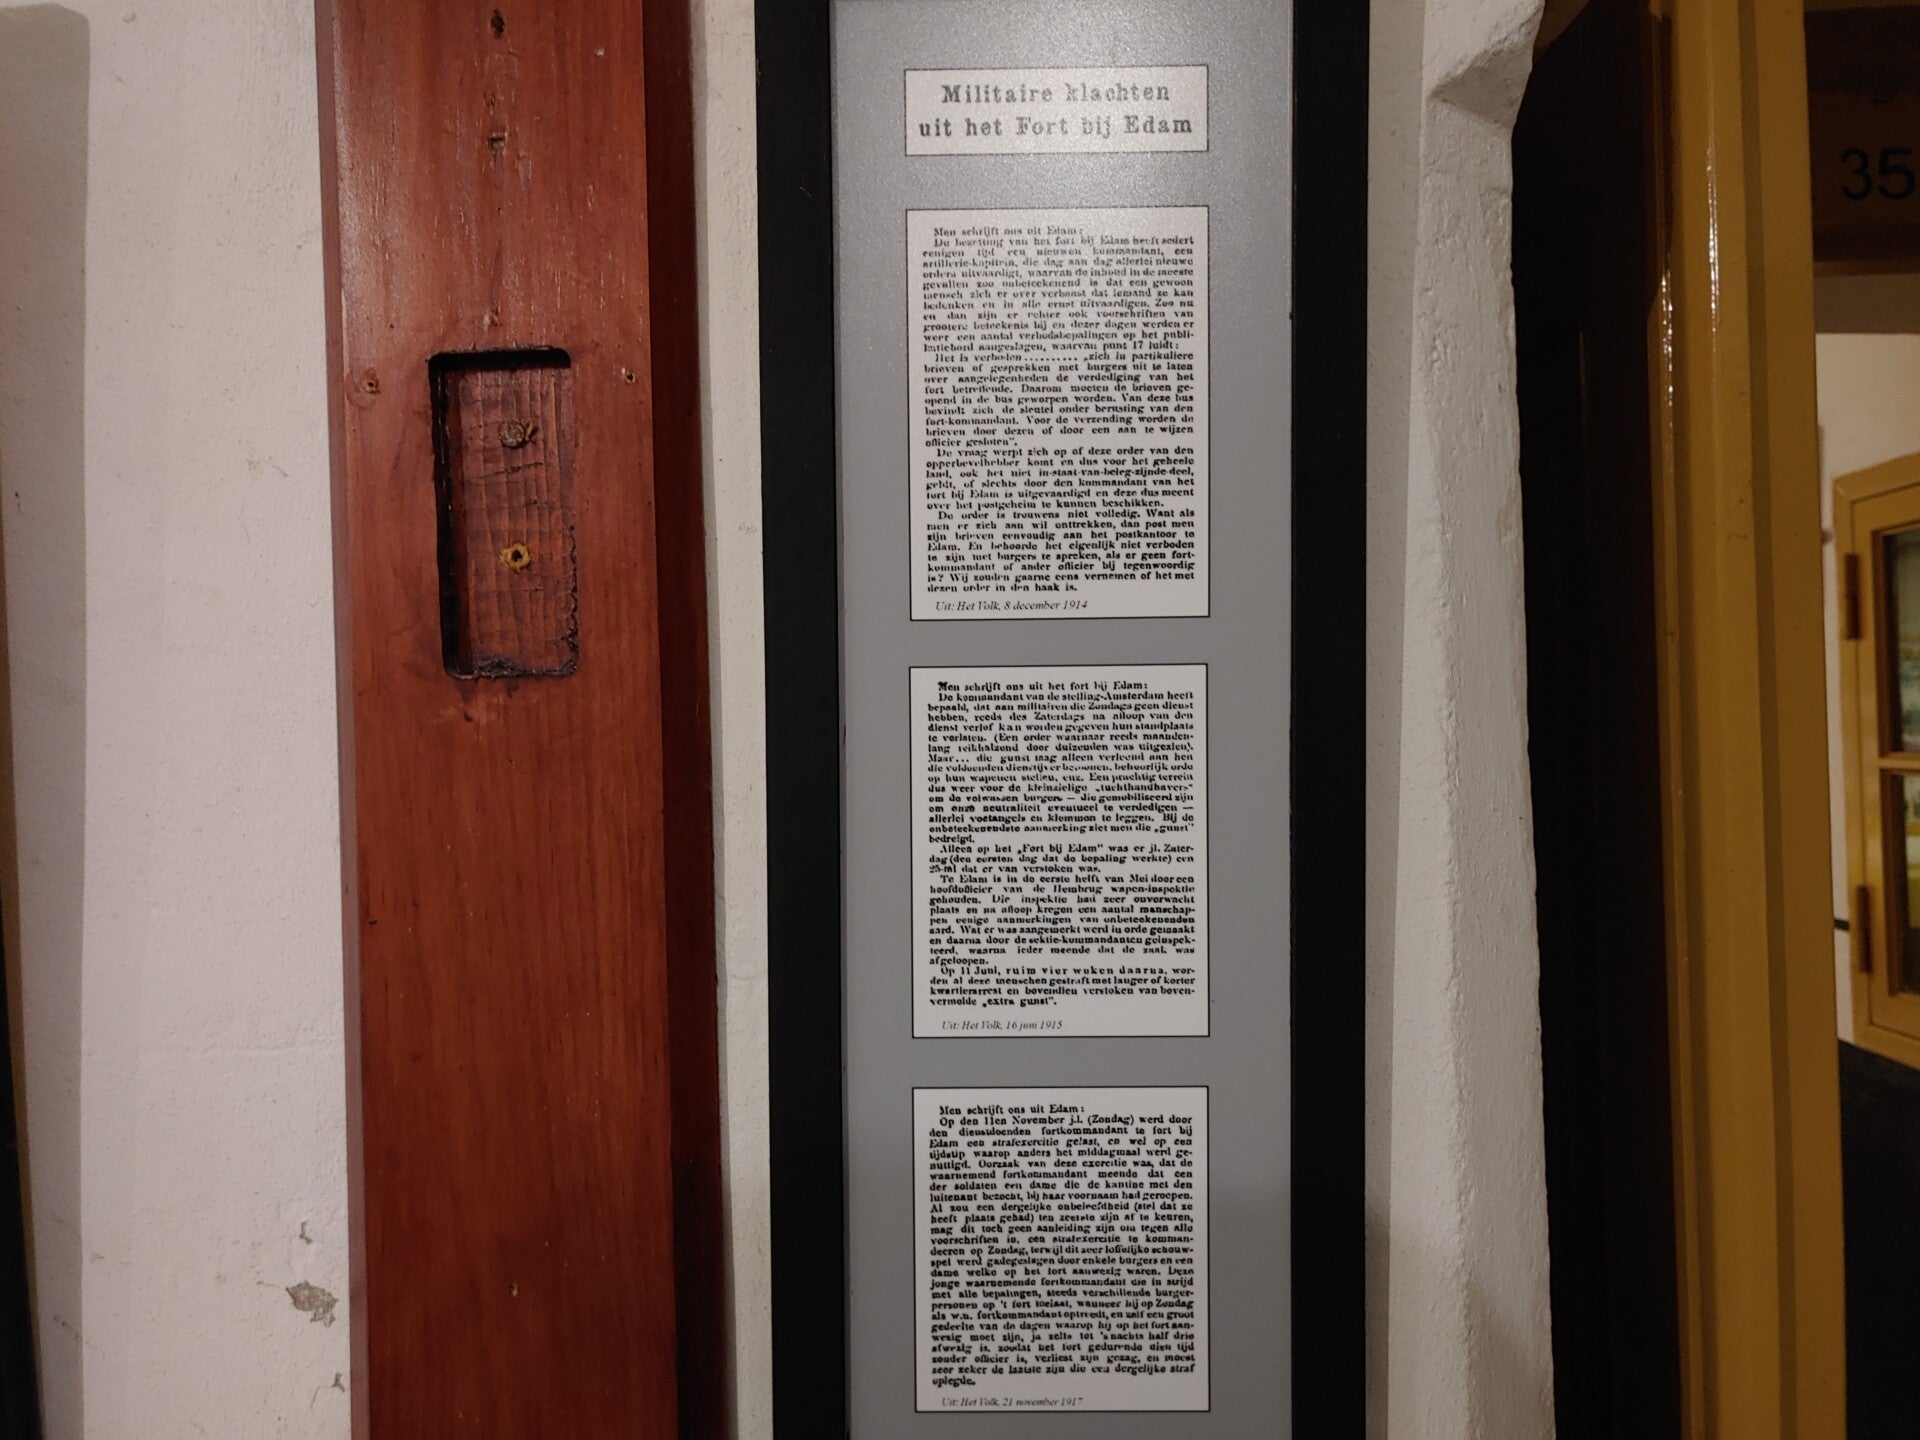 Militaire klachten
uit het Fort bij Edam
Men schrijft ons uit Edam:
De bezetting van het fort bij Edam heeft sedert
eenigen tijd een nieuwen kommandant, een
artillerie-kapitein, die dag aan dag allerlei nieuwe
orders uitvaardigt, waarvan de inhoud in de meeste
gevallen zoo onbeteekenend is dat een gewoon
mensch zich er over verbaast dat iemand ze kan
bedenken en in alle ernst uitvaardigen. Zoo nu
en dan zijn er echter ook voorschriften van
grootere beteekenis bij en dezer dagen werden er
weer een aantal verbodsbepalingen op het publi-
katiebord aangeslagen, waarvan punt 17 luidt:
Het is verboden.......... „zich in partikuliere
brieven of gesprekken met burgers uit te laten
over aangelegenheden de verdediging van het
fort betreffende. Daarom moeten de brieven ge-
opend in de bus geworpen worden. Van deze bus
bevindt zich de sleutel onder berusting van den
fort-kommandant. Voor de verzending worden de
brieven door dezen of door een aan te wijzen
officier gesloten".
De vraag werpt zich op of deze order van den
opperbevelhebber komt en dus voor het geheele
land, ook het niet in-staat-van-beleg-zijnde-deel,
geldt, of slechts door den kommandant van het
fort bij Edam is uitgevaardigd en deze dus meent
over het postgeheim te kunnen beschikken.
De order is trouwens niet volledig. Want als
men er zich aan wil onttrekken, dan post men
zijn brieven eenvoudig aan het postkantoor te
Edam. En behoorde het eigenlijk niet verboden
te zijn met burgers te spreken, als er geen fort-
kommandant of ander officier bij tegenwoordig
is? Wij zouden gaarne eens vernemen of het met
dezen order in den haak is.
Uit: Het Volk, 8 december 1914
Men schrijft ons uit het fort bij Edam:
De kommandant van de stelling-Amsterdam heeft
bepaald, dat aan militairen die Zondags geen dienst
hebben, reeds des Zaterdags na afloop van den
dienst verlof kan worden gegeven hun standplaats
te verlaten. (Een order waarnaar reeds maanden-
lang reikhalzend door duizenden was uitgezien).
Maar... die gunst mag alleen verleend aan hen
die voldoenden dienstijver betoonen, behoorlijk orde
op hun wapenen stellen, enz. Een prachtig terrein
dus weer voor de kleinzielige „tuchthandhavers"
om de volwassen burgers — die gemobiliseerd zijn
om onze neutraliteit eventueel te verdedigen —
allerlei voetangels en klemmen te leggen. Bij de
onbeteekenendste aanmerking ziet men die „gunst"
bedreigd.
Alleen op het „Fort bij Edam" was er jl. Zater-
dag (den eersten dag dat de bepaling werkte) een
25-tal dat er van verstoken was.
Te Edam is in de eerste helft van Mei door een
hoofdofficier van de Hembrug wapen-inspektie
gehouden. Die inspektie had zeer onverwacht
plaats en na afloop kregen een aantal manschap-
pen eenige aanmerkingen van onbeteekenenden
aard. Wat er was aangemerkt werd in orde gemaakt
en daarna door de sektie-kommandanten geïnspek-
teerd, waarna ieder meende dat de zaak was
afgeloopen.
Op 11 Juni, ruim vier weken daarna, wor-
den al deze menschen gestraft met langer of korter
kwartierarrest en bovendien verstoken van boven-
vermelde „extra gunst".
Uit: Het Volk, 16 juni 1915
Men schrijft ons uit Edam:
Op den 11en November j.l. (Zondag) werd door
den dienstdoenden fortkommandant te fort bij
Edam een strafexercitie gelast, en wel op een
tijdstip waarop anders het middagmaal werd ge-
nuttigd. Oorzaak van deze exercitie was, dat de
waarnemend fortkommandant meende dat een
der soldaten een dame die de kantine met den
luitenant bezocht, bij haar voornaam had geroepen.
Al zou een dergelijke onbeleefdheid (stel dat ze
heeft plaats gehad) ten zeerste zijn af te keuren,
mag dit toch geen aanleiding zijn om tegen alle
voorschriften in, een strafexercitie te komman-
deeren op Zondag, terwijl dit zeer loffelijke schouw-
spel werd gadegeslagen door enkele burgers en een
dame welke op het fort aanwezig waren. Deze
jonge waarnemende fortkommandant die in strijd
met alle bepalingen, steeds verschillende burger-
personen op 't fort toelaat, wanneer hij op Zondag
als w.n. fortkommandant optreedt, en zelf een groot
gedeelte van de dagen waarop hij op het fort aan-
wezig moet zijn, ja zelfs tot 's nachts half drie
afwezig is, zoodat het fort gedurende dien tijd
zonder officier is, verliest zijn gezag, en moest
zeer zeker de laatste zijn die een dergelijke straf
oplegde.
Uit: Het Volk, 21 november 1917
35